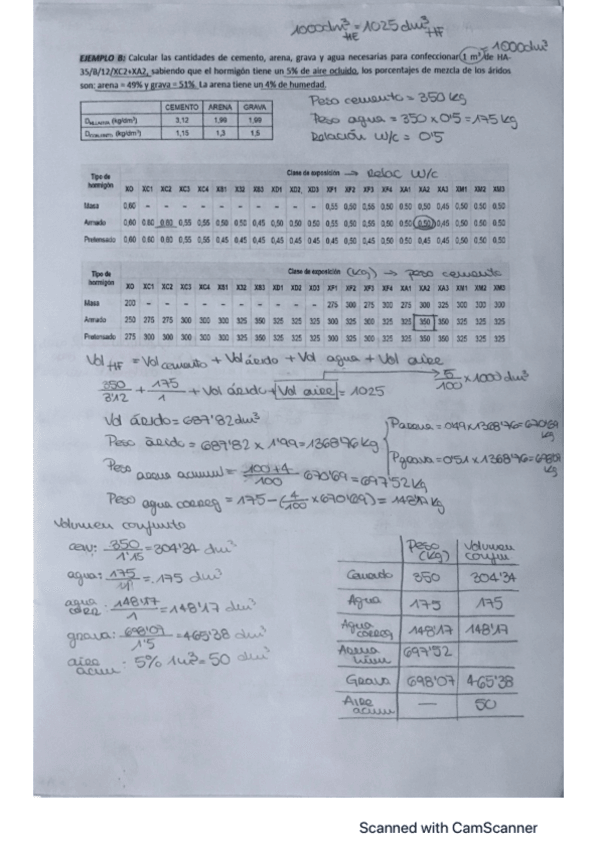 1000dm³ = 1025 dm³
HE HF
1000dm³
EJEMPLO B: Calcular las cantidades de cemento, arena, grava y agua necesarias para confeccionar 1 m³ de HA-
35/B/12/XC2+XA2, sabiendo que el hormigón tiene un 5% de aire ocluido, los porcentajes de mezcla de los áridos
son: arena = 49% y grava = 51%. La arena tiene un 4% de humedad.
CEMENTO ARENA GRAVA
(kg/dm³) 3,12 1,99 1,99
(kg/dm³) 1,15 1,3 1,5
Peso cemento = 350 kg
Peso agua = 350 x 0'5 = 175 kg
Relación w/c = 0'5
Clase de exposición → Relac w/c
Tipo de hormigón X0 XC1 XC2 XC3 XC4 XS1 XS2 XS3 XD1 XD2 XD3 XF1 XF2 XF3 XF4 XA1 XA2 XA3 XM1 XM2 XM3
Masa 0,60 - - - - - - - - - - 0,55 0,50 0,55 0,50 0,50 0,50 0,45 0,50 0,50 0,50
Armado 0,60 0,60 0,60 0,55 0,55 0,50 0,50 0,45 0,50 0,50 0,50 0,55 0,50 0,55 0,50 0,50 0,50 0,45 0,50 0,50 0,50
Pretensado 0,60 0,60 0,60 0,55 0,55 0,45 0,45 0,45 0,45 0,45 0,45 0,50 0,50 0,50 0,50 0,50 0,45 0,45 0,50 0,50 0,50
Clase de exposición (kg) → peso cemento
Tipo de hormigón X0 XC1 XC2 XC3 XC4 XS1 XS2 XS3 XD1 XD2 XD3 XF1 XF2 XF3 XF4 XA1 XA2 XA3 XM1 XM2 XM3
Masa 200 - - - - - - - - - - 275 300 275 300 275 300 325 300 300 300
Armado 250 275 275 300 300 300 325 350 325 325 325 300 325 300 325 325 350 350 325 325 325
Pretensado 275 300 300 300 300 300 325 350 325 325 325 300 325 300 325 325 350 350 325 325 325
Vol HF = Vol cemento + Vol árido + Vol agua + Vol aire
350/3'12 + 175/1 + Vol árido + Vol aire = 1025
5/100 x 1000 dm³
Vol árido = 687'82 dm³
Peso árido = 687'82 x 1'99 = 1368'76 kg
Parena = 0'49 x 1368'76 = 670'69 kg
Pgrava = 0'51 x 1368'76 = 698'07 kg
Peso arena húmeda = 100+4/100 · 670'69 = 697'52 kg
Peso agua correg = 175 - (4/100 x 670'69) = 148'17 kg
Volumen conjunto
cem: 350/1'15 = 304'34 dm³
agua: 175/1 = 175 dm³
agua corr: 148'17/1 = 148'17 dm³
grava: 698'07/1'5 = 465'38 dm³
aire acum: 5% 1m³ = 50 dm³
Peso (kg) Volumen conjun
Cemento 350 304'34
Agua 175 175
Agua correg 148'17 148'17
Arena húm 697'52
Grava 698'07 465'38
Aire acum — 50
Scanned with CamScanner